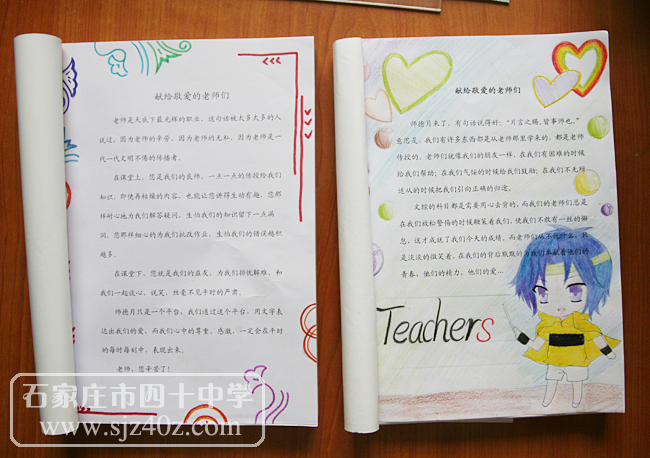 献给敬爱的老师们
老师是天底下最光辉的职业，这句话被太多太多的人
说过，因为老师的辛苦，因为老师的无私，因为老师是一
代一代文明不倦的传播者。
在课堂上，您是我们的良师，一点一点的传授给我们
知识，即使再枯燥的内容，也能让您讲得生动有趣，您那
样耐心地为我们解答疑问，生怕我们的知识留下一点漏
洞，您那样细心的为我们批改作业，生怕我们的错误越积
越多。
在课堂下，您就是我们的益友，为我们排忧解难，和
我们一起谈心，说笑，丝毫不见平时的严肃。
师德月只是一个平台，我们通过这个平台，用文字表
达出我们的爱，而我们心中的尊重，感激，一定会在平时
的每时每刻中，表现出来。
老师，您辛苦了！
献给敬爱的老师们
师德月来了，有句话说得好："片言之赐，皆事师也。"
意思是，我们有许多东西都是从老师那里学来的，都是老师
传授的，老师们就像我们的朋友一样，在我们有困难的时候
给我们帮助；在我们气馁的时候给我们鼓励；在我们不无所
适从的时候把我们引向正确的归途。
文综的科目都是需要用心去背的，而我们的老师们总是
在我们放松警惕的时候鞭策着我们，使我们不敢有一丝的懈
怠，这才成就了我们今天的成绩，而老师们从不说什么，只
是淡淡的微笑着，在我们的背后默默的为我们奉献着他们的
青春，他们的精力，他们的爱…
Teachers
石家庄市四十中学
www.sjz40z.com